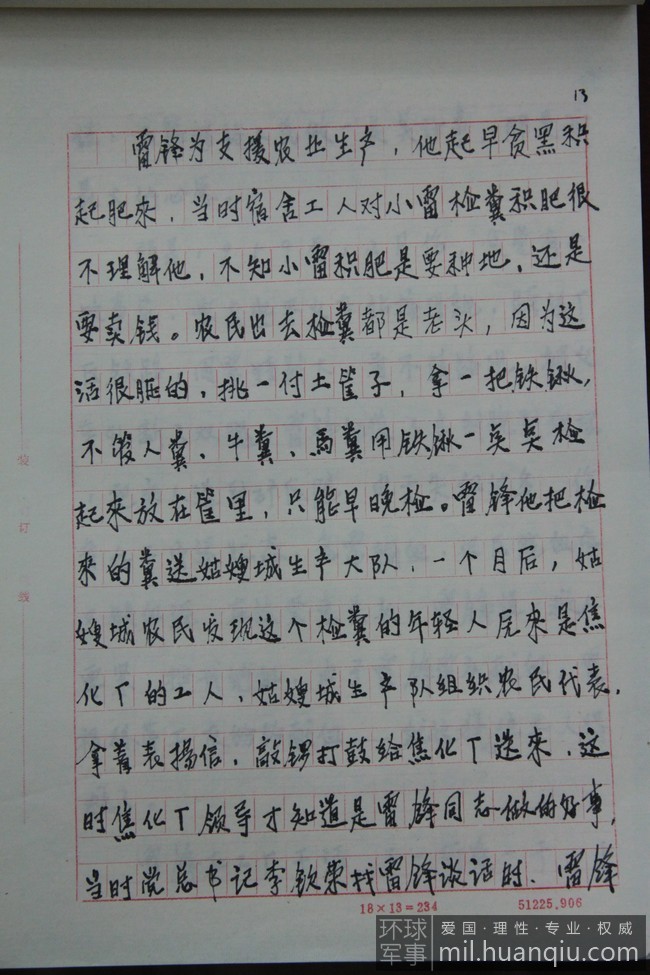 13
雷锋为支援农业生产，他起早贪黑积
起肥来，当时宿舍工人对小雷检粪积肥很
不理解他，不知小雷积肥是要种地，还是
要卖钱。农民出去检粪都是老头，因为这
活很脏的，挑一付土筐子，拿一把铁锹，
不管人粪、牛粪、马粪用铁锹一点点检
起来放在筐里，只能早晚检。雷锋他把检
来的粪送姑嫂城生产大队，一个月后，姑
嫂城农民发现这个检粪的年轻人原来是焦
化厂的工人，姑嫂城生产队组织农民代表，
拿着表扬信，敲锣打鼓给焦化厂送来，这
时焦化厂领导才知道是雷锋同志做的好事，
当时党总书记李钦荣找雷锋谈话时、雷锋
18×13=234 51225.906
装 订 线
环球军事 爱国·理性·专业·权威
mil.huanqiu.com